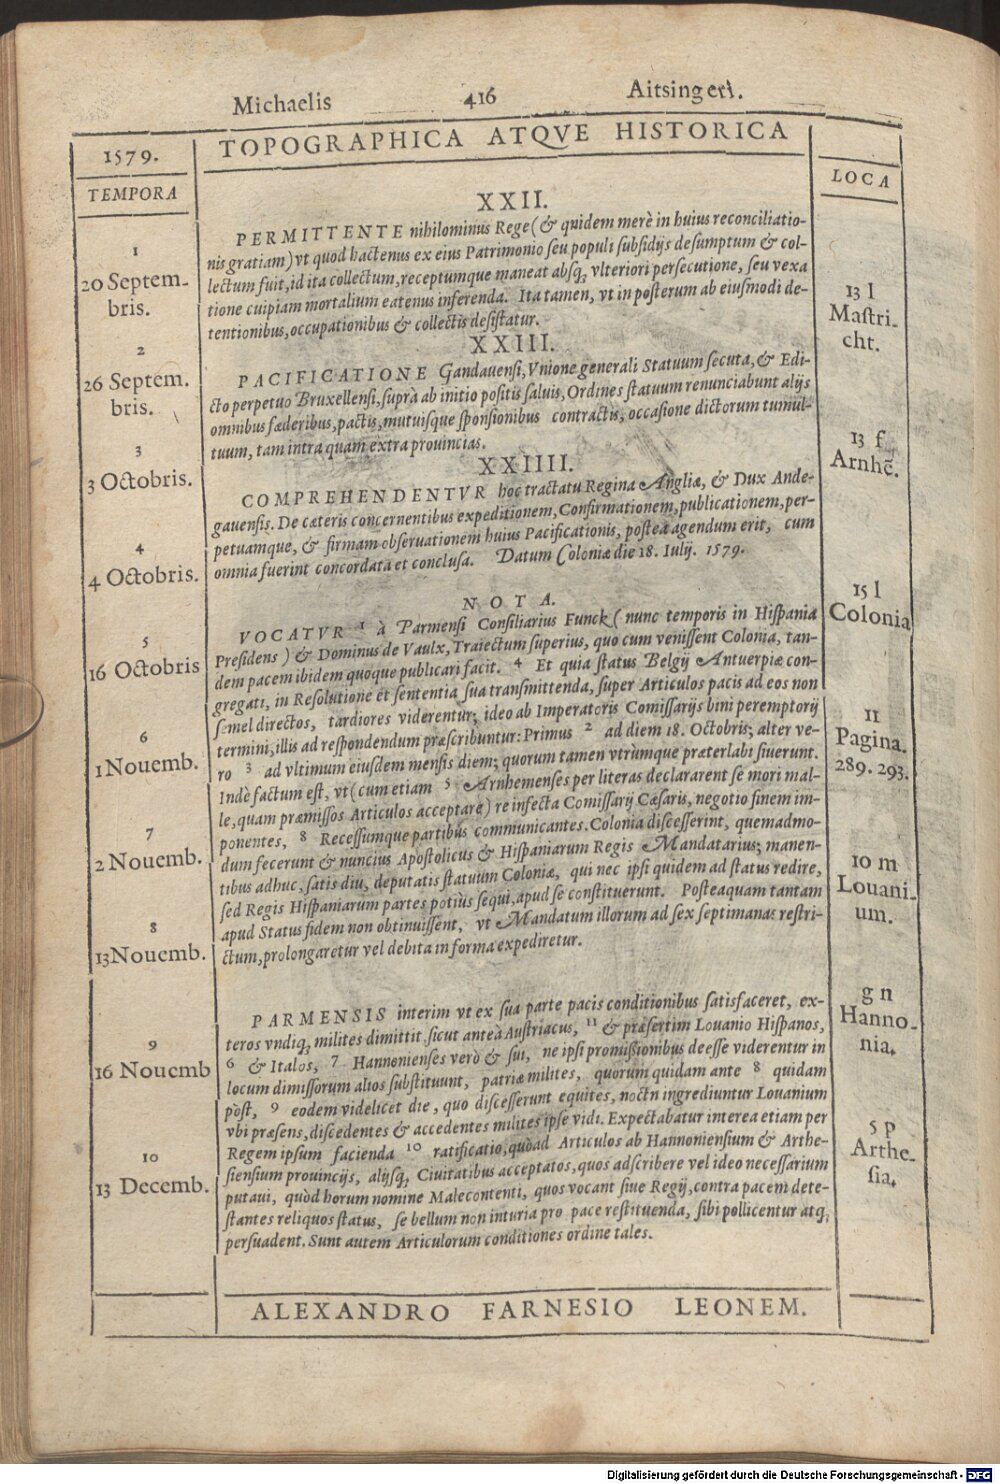 Michaelis 416 Aitsingeri.
TOPOGRAPHICA ATQVE HISTORICA
1579.
TEMPORA
1
20 Septem-
bris.
2
26 Septem.
bris.
3
3 Octobris.
4
4 Octobris.
5
16 Octobris
6
1 Nouemb.
7
2 Nouemb.
8
13 Nouemb.
9
16 Nouemb
10
13 Decemb.
XXII.
PERMITTENTE nihilominus Rege (& quidem merè in huius reconciliatio-
nis gratiam) vt quod hactenus ex eius Patrimonio seu populi subsidijs desumptum & col-
lectum fuit, id ita collectum, receptumque maneat absq; vlteriori persecutione, seu vexa
tione cuipiam mortalium eatenus inferenda. Ita tamen, vt in posterum ab eiusmodi de-
tentionibus, occupationibus & collectis desistatur.
XXIII.
PACIFICATIONE Gandauensi, Vnione generali Statuum secuta, & Edi-
cto perpetuo Bruxellensi, suprà ab initio positis saluis, Ordines statuum renunciabunt alijs
omnibus fœderibus, pactis, mutuisque sponsionibus contractis, occasione dictorum tumul-
tuum, tam intra quam extra prouincias.
XXIIII.
COMPREHENDENTVR hoc tractatu Regina Angliæ, & Dux Ande-
gauensis. De cæteris concernentibus expeditionem, Confirmationem, publicationem, per-
petuamque, & firmam obseruationem huius Pacificationis, posteà agendum erit, cum
omnia fuerint concordata et conclusa. Datum Coloniæ die 18. Iulij. 1579.
NOTA.
VOCATVR 1 à Parmensi Consiliarius Funck (nunc temporis in Hispania
Presidens) & Dominus de Vaulx, Traiectum superius, quo cum venissent Colonia, tan-
dem pacem ibidem quoque publicari facit. 4 Et quia status Belgij Antuerpiæ con-
gregati, in Resolutione et sententia sua transmittenda, super Articulos pacis ad eos non
semel directos, tardiores viderentur; ideo ab Imperatoris Comissarijs bini peremptorij
termini, illis ad respondendum præscribuntur: Primus 2 ad diem 18. Octobris; alter ve-
ro 3 ad vltimum eiusdem mensis diem; quorum tamen vtrùmque præterlabi siuerunt.
Indè factum est, vt (cum etiam 5 Arnhemenses per literas declararent se mori mal-
le, quam præmissos Articulos acceptare) re infecta Comissarij Cæsaris, negotio finem im-
ponentes, 8 Recessumque partibus communicantes. Colonia discesserint, quemadmo-
dum fecerunt & nuncius Apostolicus & Hispaniarum Regis Mandatarius; manen-
tibus adhuc, satis diu, deputatis statuum Coloniæ, qui nec ipsi quidem ad status redire,
sed Regis Hispaniarum partes potiùs sequi, apud se constituerunt. Posteaquam tantam
apud Status fidem non obtinuissent, vt Mandatum illorum ad sex septimanas restri-
ctum, prolongaretur vel debita in forma expediretur.
PARMENSIS interim vt ex sua parte pacis conditionibus satisfaceret, ex-
teros vndiq; milites dimittit, sicut anteà Austriacus, 11 & præsertim Louanio Hispanos,
6 & Italos, 7 Hannonienses verò & sui, ne ipsi promissionibus deesse viderentur in
locum dimissorum alios substituunt, patriæ milites, quorum quidam ante 8 quidam
pòst, 9 eodem videlicet die, quo discesserunt equites, noctu ingrediuntur Louanium
vbi præsens, discedentes & accedentes milites ipse vidi. Expectabatur interea etiam per
Regem ipsum facienda 10 ratificatio, quòad Articulos ab Hannoniensium & Arthe-
siensium prouincijs, alijsq; Ciuitatibus acceptatos, quos adscribere vel ideo necessarium
putaui, quòd horum nomine Malecontenti, quos vocant siue Regij, contra pacem dete-
stantes reliquos status, se bellum non iniuria pro pace restituenda, sibi pollicentur atq;
persuadent. Sunt autem Articulorum conditiones ordine tales.
ALEXANDRO FARNESIO LEONEM.
LOCA
13 l
Mastri-
cht.
13 f
Arnhē.
15 l
Colonia
11
Pagina.
289. 293.
10 m
Louani-
um.
g n
Hanno-
nia.
5 p
Arthe-
sia.
Digitalisierung gefördert durch die Deutsche Forschungsgemeinschaft - DFG